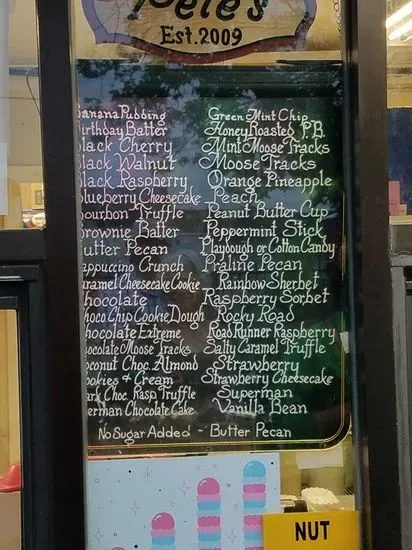 Pete's
Est. 2009
Banana Pudding
Birthday Batter
Black Cherry
Black Walnut
Black Raspberry
Blueberry Cheesecake
Bourbon Truffle
Brownie Batter
Butter Pecan
Cappuccino Crunch
Caramel Cheesecake Cookie
Chocolate
Choco Chip Cookie Dough
Chocolate Extreme
Chocolate Moose Tracks
Coconut Choc. Almond
Cookies & Cream
Dark Choc. Rasp. Truffle
German Chocolate Cake
Green Mint Chip
Honey Roasted P.B.
Mint Moose Tracks
Moose Tracks
Orange Pineapple
Peach
Peanut Butter Cup
Peppermint Stick
Playdough or Cotton Candy
Praline Pecan
Rainbow Sherbet
Raspberry Sorbet
Rocky Road
Road Runner Raspberry
Salty Caramel Truffle
Strawberry
Strawberry Cheesecake
Superman
Vanilla Bean
No Sugar Added - Butter Pecan
NUT